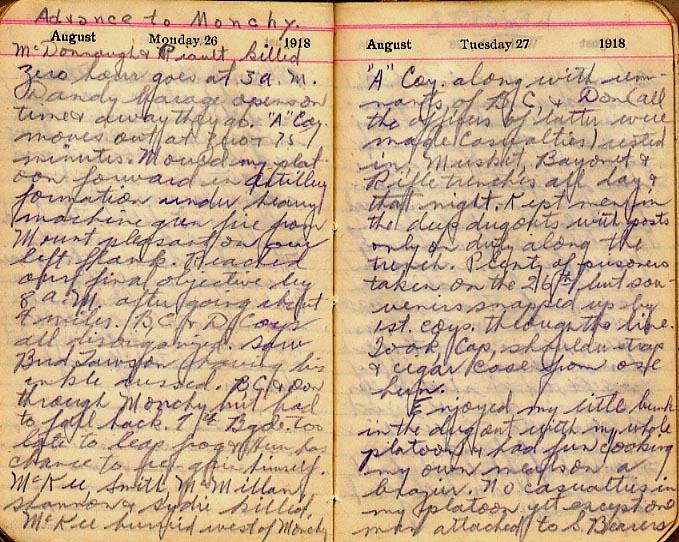 Advance to Monchy.
August Monday 26 1918
McDonnough & Pirault killed
Zero hour goes at 3 a.m.
Dandy barage opens on
time & away they go. "A" Coy.
moves out at Zero + 75
minutes. Moved my plat-
oon forward in artillery
formation under heavy
machine gun fire from
Mount pleasant on our
left flank. Reached
our final objective by
8 a.m. after going about
4 miles. B, C & D Coys
all disorganized. Saw
Bud Lawson having his
ankle dressed. B, C & Don
through Monchy but had
to fall back. 7th Bgde. too
late to leap frog & Hun has
chance to himself.
McKee Smith, McMillan,
Shannon & killed.
McKee buried west of Monchy
August Tuesday 27 1918
"A" Coy. along with rem-
nants of B, C, & Don (all
the officers of latter were
made casualties) rested
in Musket, Bayonet &
Rifle trenches all day &
that night. Kept men in
the deep dugouts with posts
only on duty along the
trench. Plenty of prisoners
taken on the 26th, but sou-
venirs snapped up by
1st. coys. through the line.
Took Cap, shoulder strap
& cigar case from one
hun.
Enjoyed my little bunk
in the dugout with my whole
platoon & had fun cooking
my own meals on a
brazier. No casualties in
my platoon yet except one
man attached to S. Bearers